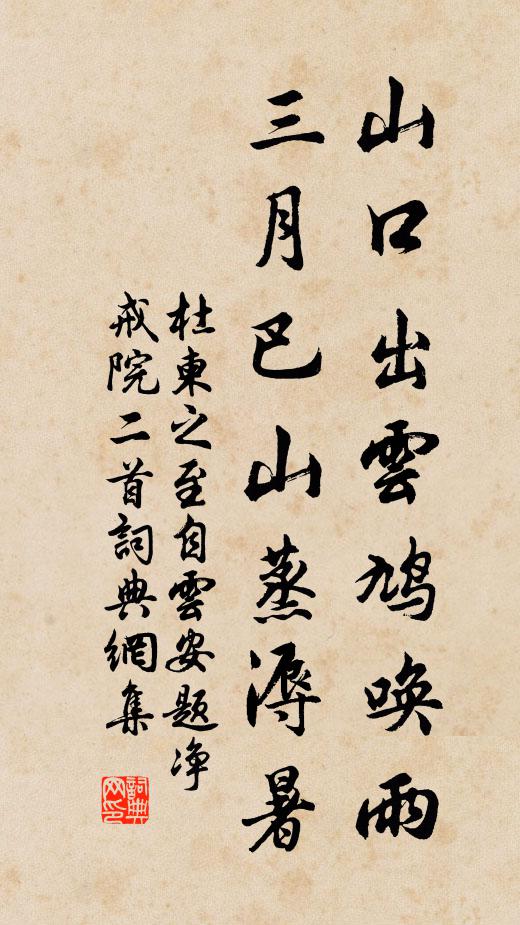 山口出雲鳩喚雨
三月巴山蒸溽暑
杜東之至自雲安題净
戒院二首詞典網集
詞典网印